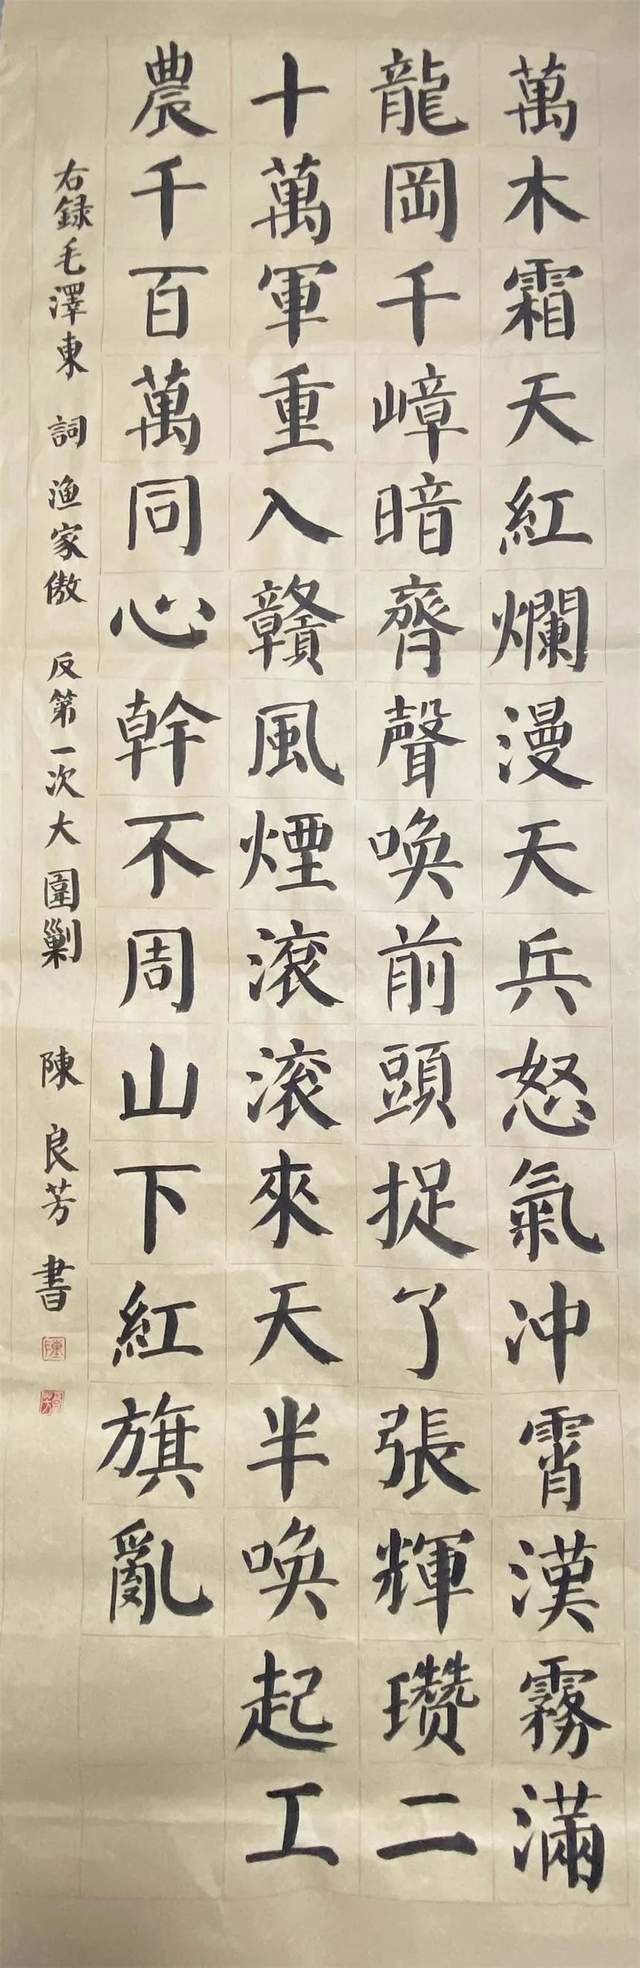 萬木霜天紅爛漫天兵怒氣沖霄漢霧滿
龍岡千嶂暗齊聲喚前頭捉了張輝瓚二
十萬軍重入贛風煙滾滾來天半喚起工
農千百萬同心幹不周山下紅旗亂
右録毛澤東 詞 渔家傲 反第一次大圍剿 陳良芳書